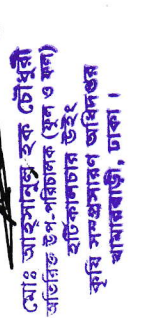 মোঃ আহসানুল হক চৌধুরী
অতিরিক্ত উপ-পরিচালক (ফুল ও ফল)
হর্টিকালচার উইং
কৃষি সম্প্রসারণ অধিদপ্তর
খামারবাড়ী, ঢাকা।